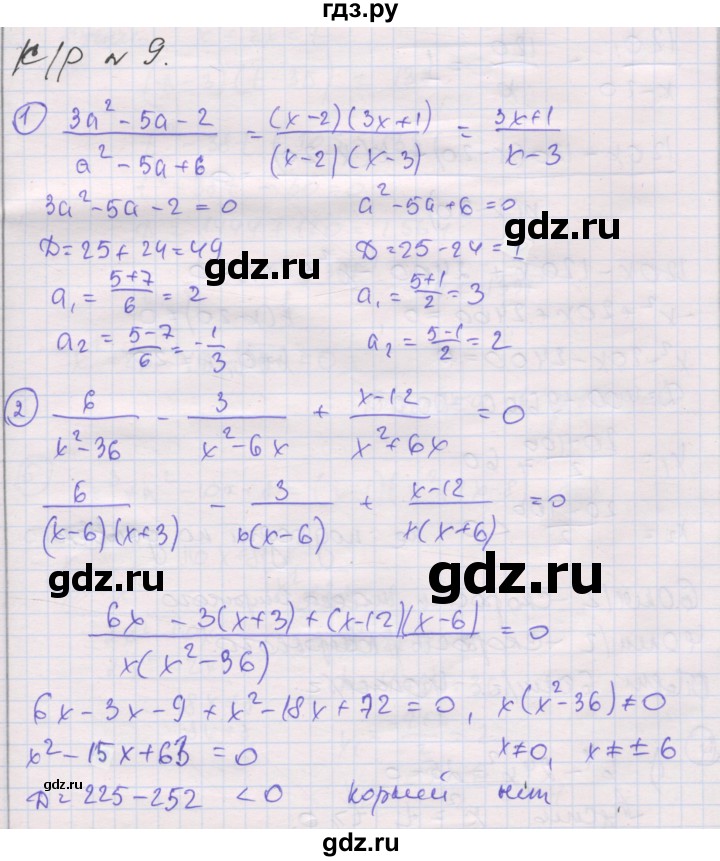 гдз.ру
К/р № 9.
① (3a² - 5a - 2)/(a² - 5a + 6) = ((x-2)(3x+1))/((x-2)(x-3)) = (3x+1)/(x-3)
3a² - 5a - 2 = 0     a² - 5a + 6 = 0
gdz.ru
D = 25 + 24 = 49     D = 25 - 24 = 1
gdz.ru
a₁ = (5+7)/6 = 2     a₁ = (5+1)/2 = 3
a₂ = (5-7)/6 = -1/3     a₂ = (5-1)/2 = 2
② 6/(x²-36) - 3/(x²-6x) + (x-12)/(x²+6x) = 0
6/((x-6)(x+3)) - 3/(x(x-6)) + (x-12)/(x(x+6)) = 0
gdz.ru
gdz.ru
(6x - 3(x+3) + (x-12)(x-6))/(x(x²-36)) = 0
6x - 3x - 9 + x² - 18x + 72 = 0, x(x²-36) ≠ 0
x² - 15x + 63 = 0     x ≠ 0, x ≠ ± 6
D = 225 - 252 < 0 корней нет
gdz.ru
gdz.ru
gdz.ru